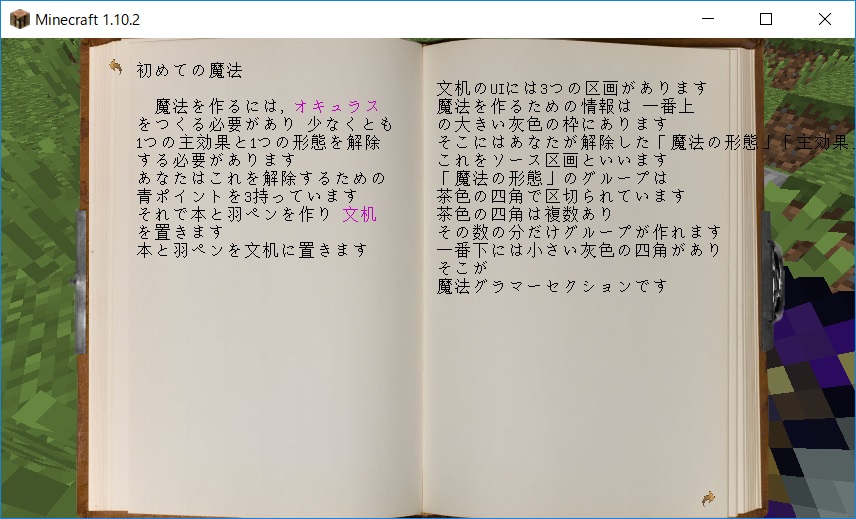 Minecraft 1.10.2
初めての魔法
魔法を作るには,オキュラス
をつくる必要があり 少なくとも
1つの主効果と1つの形態を解除
する必要があります
あなたはこれを解除するための
青ポイントを3持っています
それで本と羽ペンを作り 文机
を置きます
本と羽ペンを文机に置きます
文机のUIには3つの区画があります
魔法を作るための情報は 一番上
の大きい灰色の枠にあります
そこにはあなたが解除した「魔法の形態」「主効果」
これをソース区画といいます
「魔法の形態」のグループは
茶色の四角で区切られています
茶色の四角は複数あり
その数の分だけグループが作れます
一番下には小さい灰色の四角があり
そこが
魔法グラマーセクションです